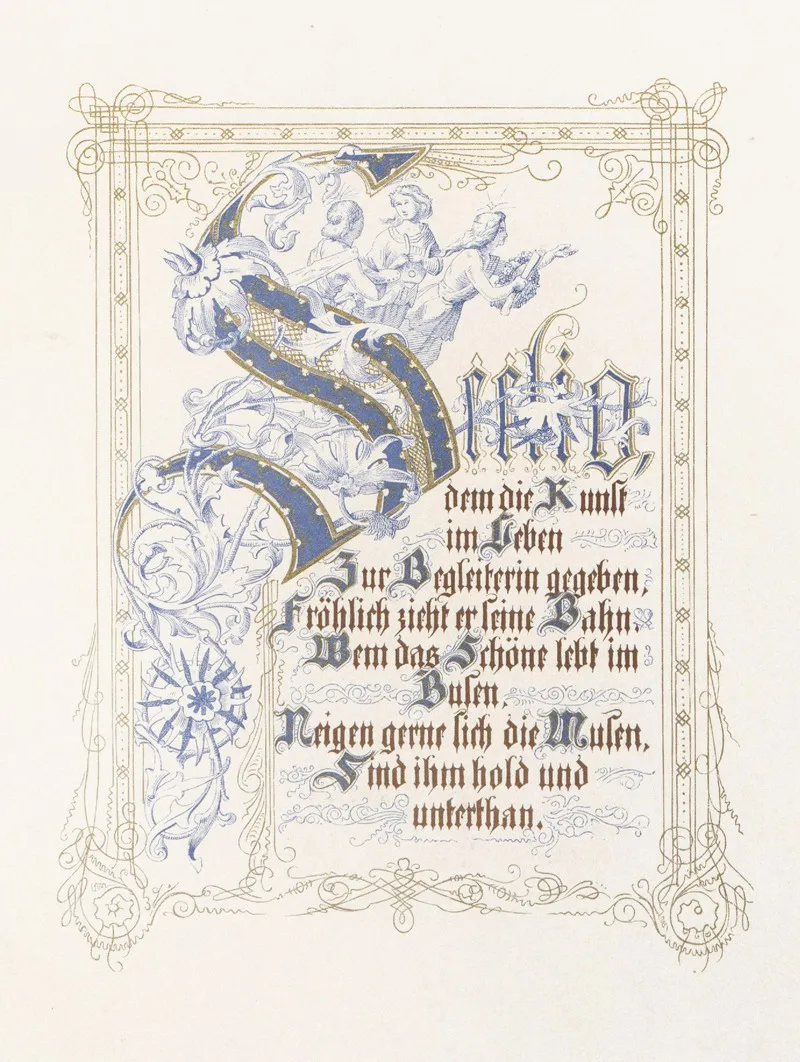 Seelig,
dem die Kunſt
im Leben
Zur Begleiterin gegeben,
Fröhlich zieht er ſeine Bahn.
Wem das Schöne lebt im
Buſen,
Neigen gerne ſich die Muſen,
Sind ihm hold und
unterthan.